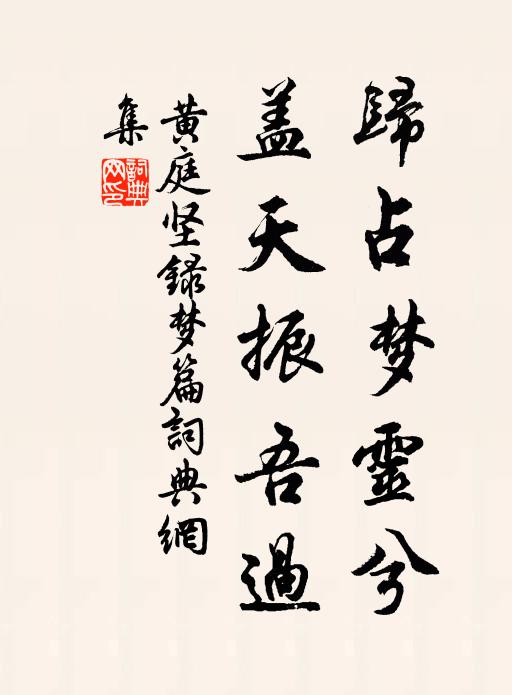 歸占梦靈兮
盖天振吾過
黄庭坚録梦篇詞典網
集
詞典網印